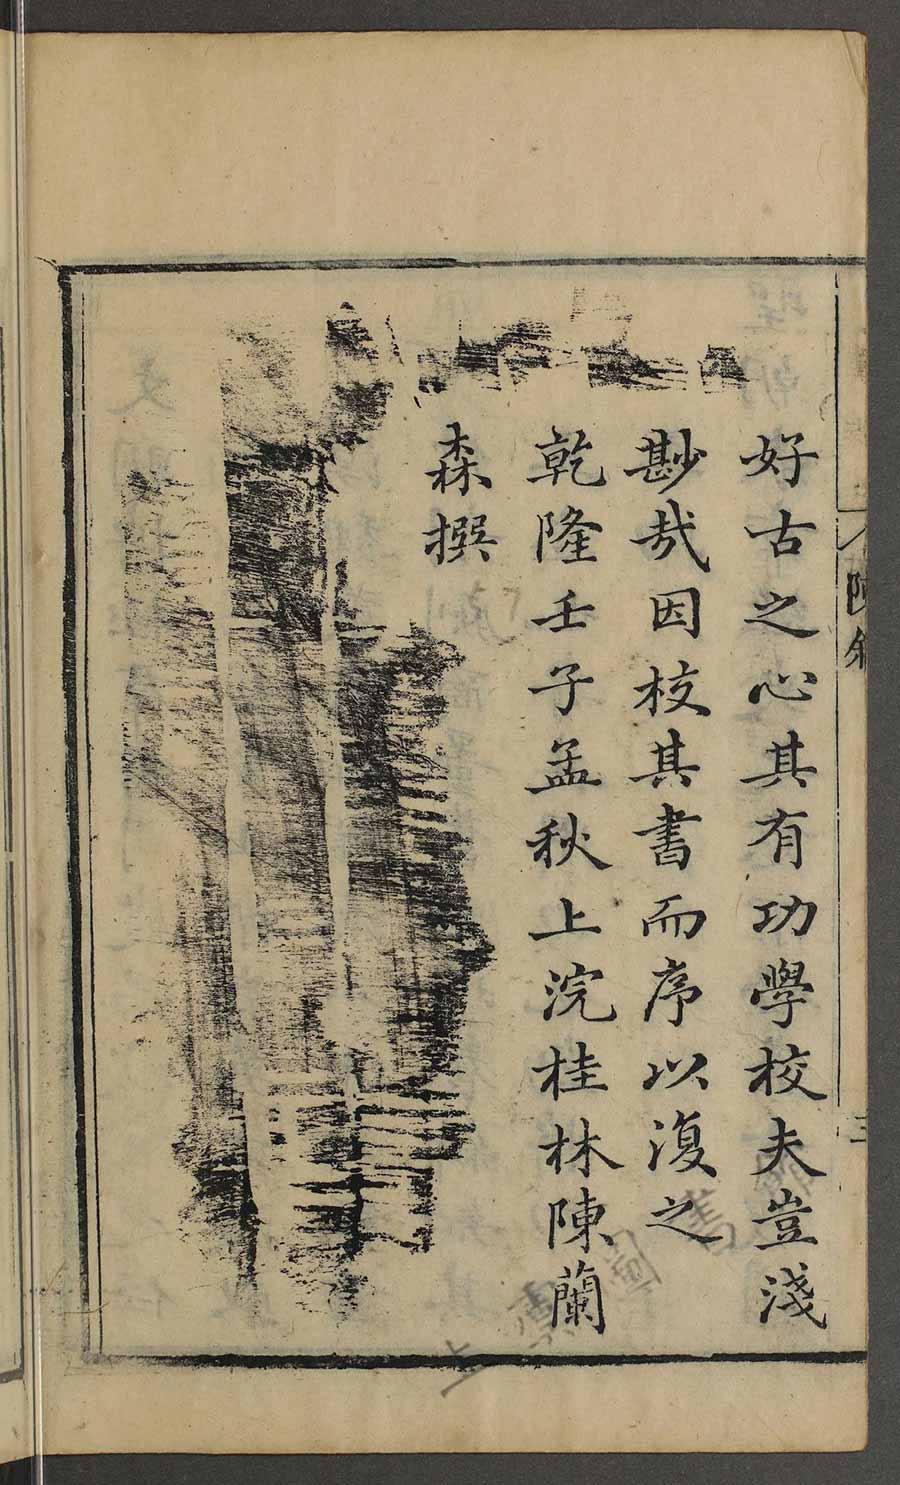 好古之心其有功學校夫豈淺
尠哉因校其書而序以復之
乾隆壬子孟秋上浣桂林陳蘭
森撰